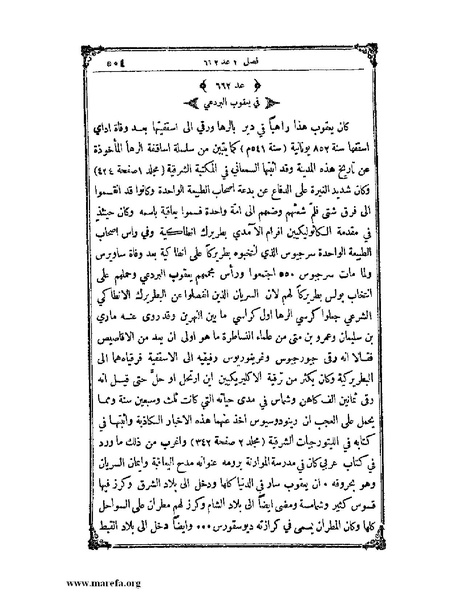 فصل ٢ عد ٦٦٢ ٥٠٤
عد ٦٦٢
في يعقوب البردعي
كان يعقوب هذا راهباً في دير بالرها ورقي الى اسقفيتها بعد وفاة اداي
اسقفها سنة ٨٥٢ يونانية (سنة ٥٤١م) كما يتبين من سلسلة اساقفة الرها المأخوذة
عن تاريخ هذه المدينة وقد اثبتها السمعاني في المكتبة الشرقية (مجلد ١ صفحة ٤٢٤)
وكان شديد الغيرة على الدفاع عن بدعة اصحاب الطبيعة الواحدة وكانوا قد انقسموا
الى فرق شتى فلمّ شعثهم وضمهم الى امّة واحدة فسموا يعاقبة باسمه وكان حينئذٍ
في مقدمة الكاثوليكيين افرام الآمدي بطريرك انطاكية وفي راس اصحاب
الطبيعة الواحدة سرجيوس الذي انتخبوه بطريركاً على انطاكية بعد وفاة ساويرس
ولما مات سرجيوس ٥٥٠ اجتمعوا ورأس مجمعهم يعقوب البردعي وحملهم على
انتخاب بولس بطريركاً لهم لان السريان الذين انفصلوا عن البطريرك الانطاكي
الشرعي جعلوا كرسي الرها اولى كراسي ما بين النهرين وقد روى عنه ماري
بن سليمان وعمرو بن متى من علماء النساطرة ما هو اولى ان يعد من الاقاصيص
فقالا انه رقى جيورجيوس وغريغوريوس رفيقيه الى الاسقفية فرقياه هما الى
البطريركية وكان يكثر من ترقية الاكليريكيين اين ارتحل او حلّ حتى قيل انه
رقى ثمانين الف كاهن وشماس في مدى حياته التي كانت ثلث وسبعين سنة ومما
يحمل على العجب ان رينودوسيوس اخذ عنهما هذه الاخبار الكاذبة واثبتها في
كتابه في الليتورجيات الشرقية (مجلد ٢ صفحة ٣٤٢) واغرب من ذلك ما ورد
في كتاب عربي كان في مدرسة الموارنة برومه عنوانه مدح اليعاقبة وايمان السريان
وهو بحروفه • ان يعقوب سار في الدنيا كلها ودخل الى بلاد الشرق وكرز فيها
قسوس كثير وشمامسة ومضى ايضاً الى بلاد الشام وكرز لهم مطران على السواحل
كلها وكان المطران يسمى في كرازته ديوسقورس ••• وايضاً دخل الى بلاد القبط
www.marefa.org